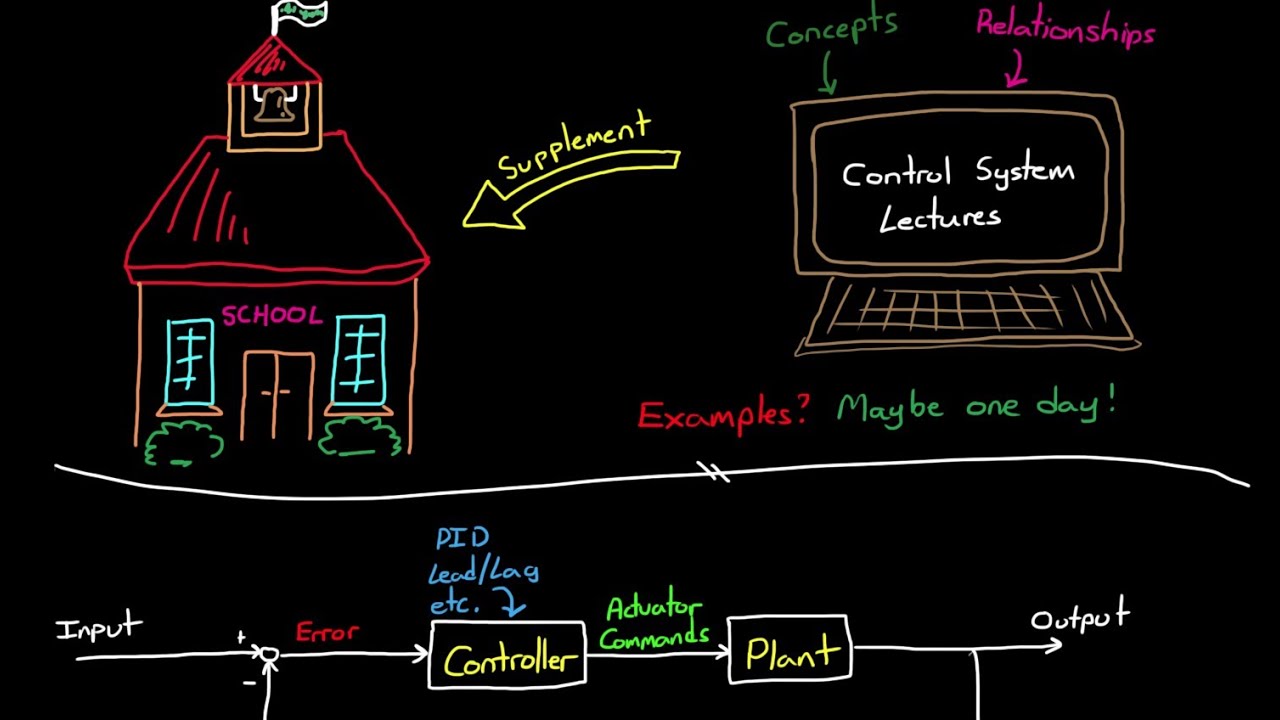 Concepts
Relationships
Supplement
Control System
Lectures
SCHOOL
Examples? Maybe one day!
PID
Lead/Lag
etc.
Input
+
-
Error
Controller
Actuator
Commands
Plant
Output